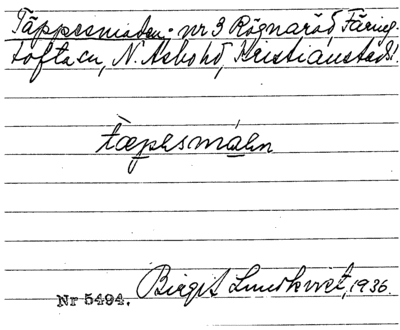 Täppesmaden: nr 3 Rögnaröd, Färing-
tofta sn, N. Åsbo hd, Kristianstads l.
tæpesmáən
Birgit Lundkvist, 1936.
Nr 5494.